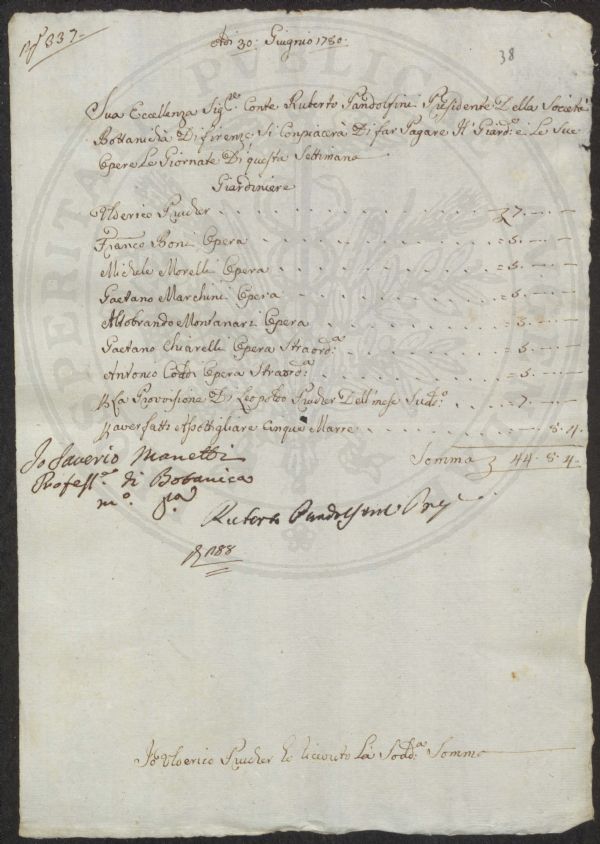 N° 337.
Adi 30: Giugnio 1780.
38
Sua Eccellenza Sig:re Conte Ruberto Pandolfini Presidente Della Società
Bottanicha Di firenze Si Conpiacerà Di far Pagare Il Giard:e e Le Sue
Opere Le Giornate Di questa Settimana
Giardiniere
Ulderico Prucher 7. — —
Franco Boni Opera = 5. — —
Michele Morelli Opera = 5. — —
Gaetano Marchini Opera = 5. — —
Aldobrando Montanari Opera 5. — —
Gaetano Chiarelli Opera Straord:a = 5. — —
Antonio Opera Straord:a = 5. — —
P La Provvisione Di Leopoldo Prucher Dell'mese Sud:o 7. — —
P aver fatto Cinque Marre — 8. 4.
Somma 44. 8. 4.
Io Saverio Manetti
Profess.e di Botanica
m:o p:a
Ruberto Pandolfini
188
Io Ulderico Prucher ho riceuto La Sodd:a Somma